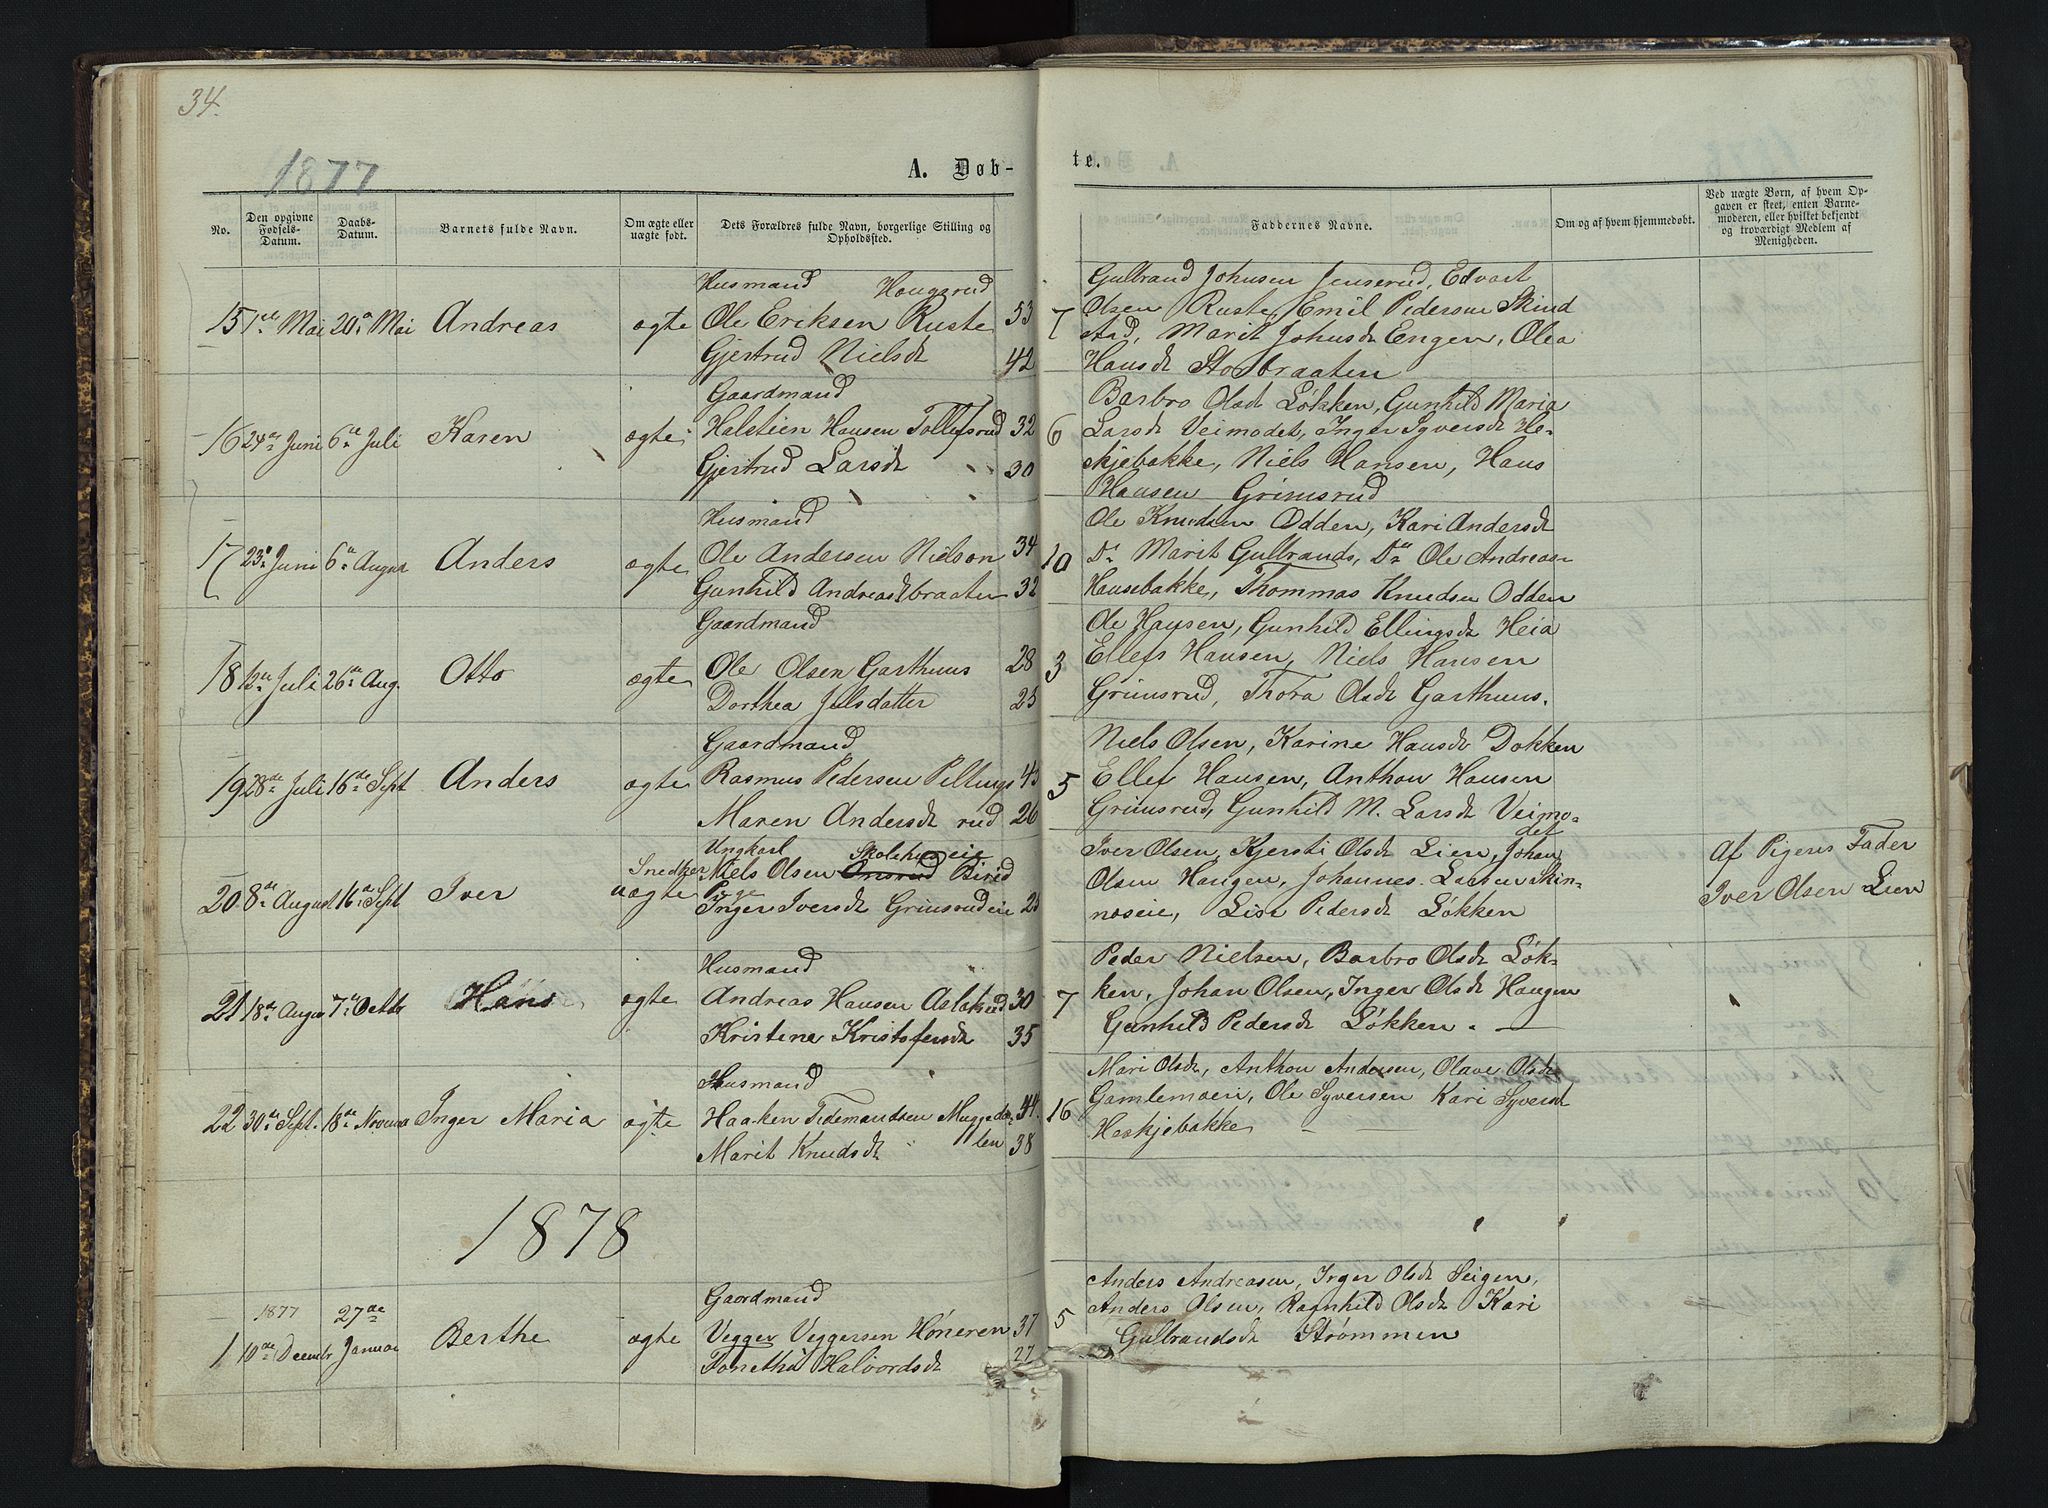 34.
1877
A. Døb-
te.
No.
Den opgivne Fødsels-Datum.
Daabs-Datum.
Barnets fulde Navn.
Om ægte eller uægte født.
Dets Forældres fulde Navn, borgerlige Stilling og Opholdssted.
Faddernes Navne.
Om og af hvem hjemmedøbt.
Ved uægte Børn, af hvem Op-
gaven er skeet, enten Barne-
moderen, eller hvilket bekjendt
og troværdigt Medlem af
Menigheden.
Husmand Hougsrud
15 1ste Mai 20de Mai Andreas ægte Ole Eriksen Ruste 53
Gjertrud Nielsdt 42
7
Gulbrand Johnsen Jenserud, Edvart
Olsen Ruste, Emil Pedersen Skind
stad, Marit Johnsdt Engen, Olea
Hansdt Storbraaten
Gaardmand
16 24de Juni 6te Juli Karen ægte Halstein Hansen Tollefsrud 32
Gjertrud Larsdt 30
6
Barbro Olsdt Løkken, Gunhild Maria
Larsdt Veimodet, Inger Syversdt He-
skjebakke, Niels Hansen, Hans
Hansen Grimsrud
Husmand
17 23de Juni 6te August Anders ægte Ole Andersen Nielson 34
Gunhild Andreasdt braaten 32
10
Ole Knudsen Odden, Kari Andersdt
Do Marit Gulbrands, Do Ole Andreasen
Hansebakke, Thommas Knudsen Odden
Gaardmand
18 13de Juli 26de Aug. Otto ægte Ole Olsen Garthuus 28
Dorthea Julsdatter 25
3
Ole Hansen, Gunhild Ellingsdt Heia
Ellefs Hansen, Niels Hansen
Grimsrud, Thora Olsdt Garthuus.
Gaardmand
19 28de Juli 16de Sept Anders ægte Rasmus Pedersen Pellings 45
Maren Andersdt rud 26
5
Niels Olsen, Karine Hansdt Dokken
Ellef Hansen, Anthon Hansen
Grimsrud, Gunhild M. Larsdt Veimo-
det
Ungkarl Skolehuseie
Snedker Niels Olsen Onsrud Birid
20 8de August 16de Sept Iver uægte Pige
Inger Iversdt Grimsrudeie 25
Iver Olsen, Kjersti Olsdt Lien, Johan
Olsen Haugen, Johannes Larsen Skin-
noseie, Lise Pedersdt Løkken
Af Pigens Fader
Iver Olsen Lien
Husmand
21 18de August 7de Octbr Hans ægte Andreas Hansen Aslaksrud 30
Kristine Kristofersdt 35
7
Peder Nielsen, Barbro Olsdt Løk-
ken, Johan Olsen, Inger Olsdt Haugen
Gunhild Pedersdt Løkken. —
Husmand
22 30de Sept. 18de Novemb Inger Maria ægte Haaken Tidemandsen Muggeda- 44
Marit Knudsdt len 38
16
Mari Olsdt, Anthon Andersen, Olave Olsdt
Gamlemoen, Ole Syversen Kari Syversdt
Heskjebakke
1878
Gaardmand
1 1877 10de Decembr 27de Januar Berthe ægte Vegger Veggersen Høneren 37
Tonetha Halvordsdt 27
5
Anders Andreasen, Inger Olsdt Seigen,
Anders Olsen, Ragnhild Olsdt Kari
Gulbrandsdt Strømmen